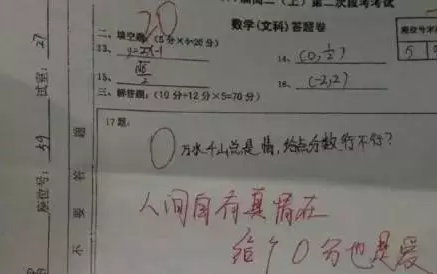 二(上)第二次段考考试
数学(文科)答题卷
20
二、填空题:(5分×4=20分)
13、y=2x-1
14、(0,1/2)
15、
16、(-2,2)
三、解答题:(10分+12分×5=70分)
17题:
0
万水千山总是情,给点分数行不行?
人间自有真情在
给个0分也是爱
试室:27
座位号:
不要答题